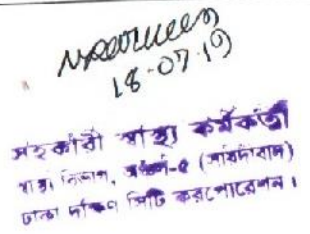 18-07-19
সহকারী স্বাস্থ্য কর্মকর্তা
স্বাস্থ্য বিভাগ, অঞ্চল-৫ (সায়দাবাদ)
ঢাকা দক্ষিণ সিটি কর্পোরেশন।